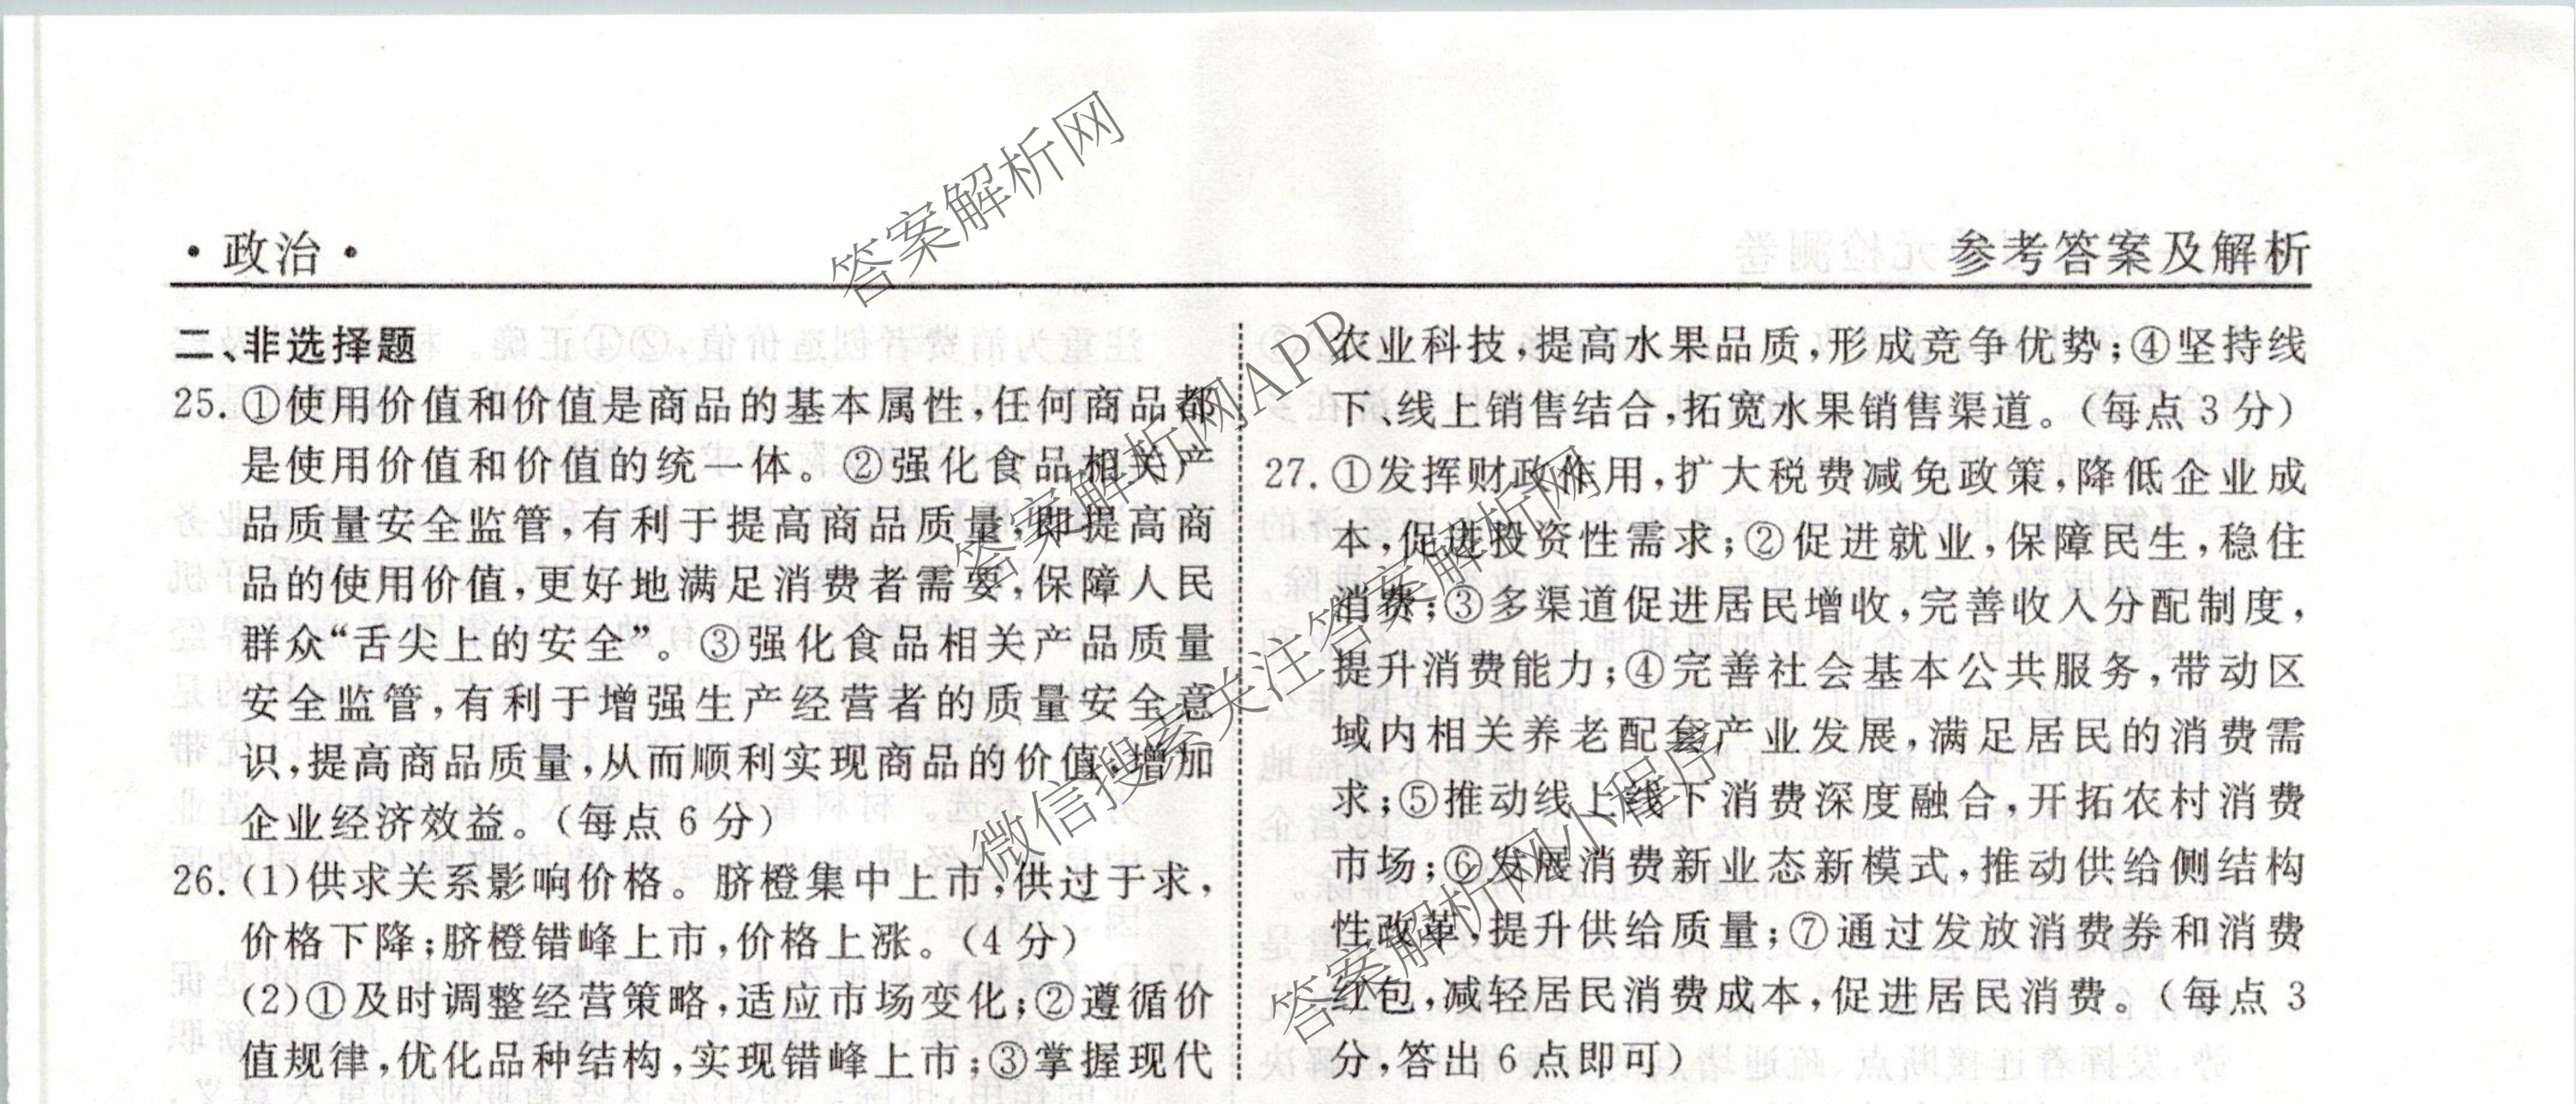 ·政治·
参考答案及解析
二、非选择题
25.①使用价值和价值是商品的基本属性,任何商品都
是使用价值和价值的统一体。②强化食品相关产
品质量安全监管,有利于提高商品质量,即提高商
品的使用价值,更好地满足消费者需要,保障人民
群众“舌尖上的安全”。③强化食品相关产品质量
安全监管,有利于增强生产经营者的质量安全意
识,提高商品质量,从而顺利实现商品的价值,增加
企业经济效益。(每点6分)
26.(1)供求关系影响价格。脐橙集中上市,供过于求,
价格下降;脐橙错峰上市,价格上涨。(4分)
(2)①及时调整经营策略,适应市场变化;②遵循价
值规律,优化品种结构,实现错峰上市;③掌握现代
农业科技,提高水果品质,形成竞争优势;④坚持线
下、线上销售结合,拓宽水果销售渠道。(每点3分)
27.①发挥财政作用,扩大税费减免政策,降低企业成
本,促进投资性需求;②促进就业,保障民生,稳住
消费;③多渠道促进居民增收,完善收入分配制度,
提升消费能力;④完善社会基本公共服务,带动区
域内相关养老配套产业发展,满足居民的消费需
求;⑤推动线上线下消费深度融合,开拓农村消费
市场;⑥发展消费新业态新模式,推动供给侧结构
性改革,提升供给质量;⑦通过发放消费券和消费
红包,减轻居民消费成本,促进居民消费。(每点3
分,答出6点即可)
答案解析网
答案解析网APP
微信搜索关注答案解析网
答案解析网小程序